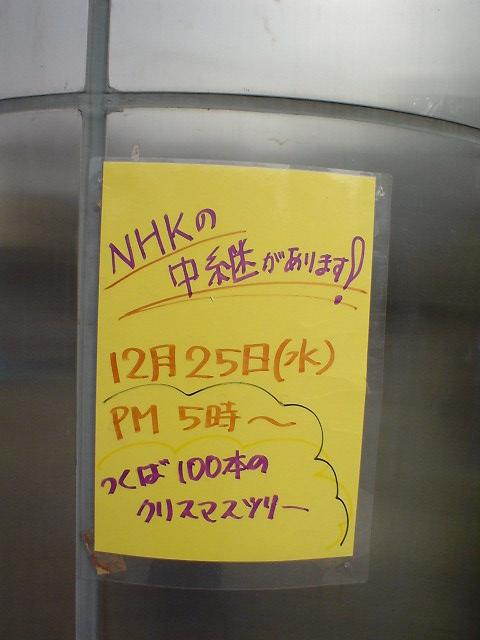 NHKの
中継があります!
12月25日(水)
PM 5時〜
つくば100本の
クリスマスツリー